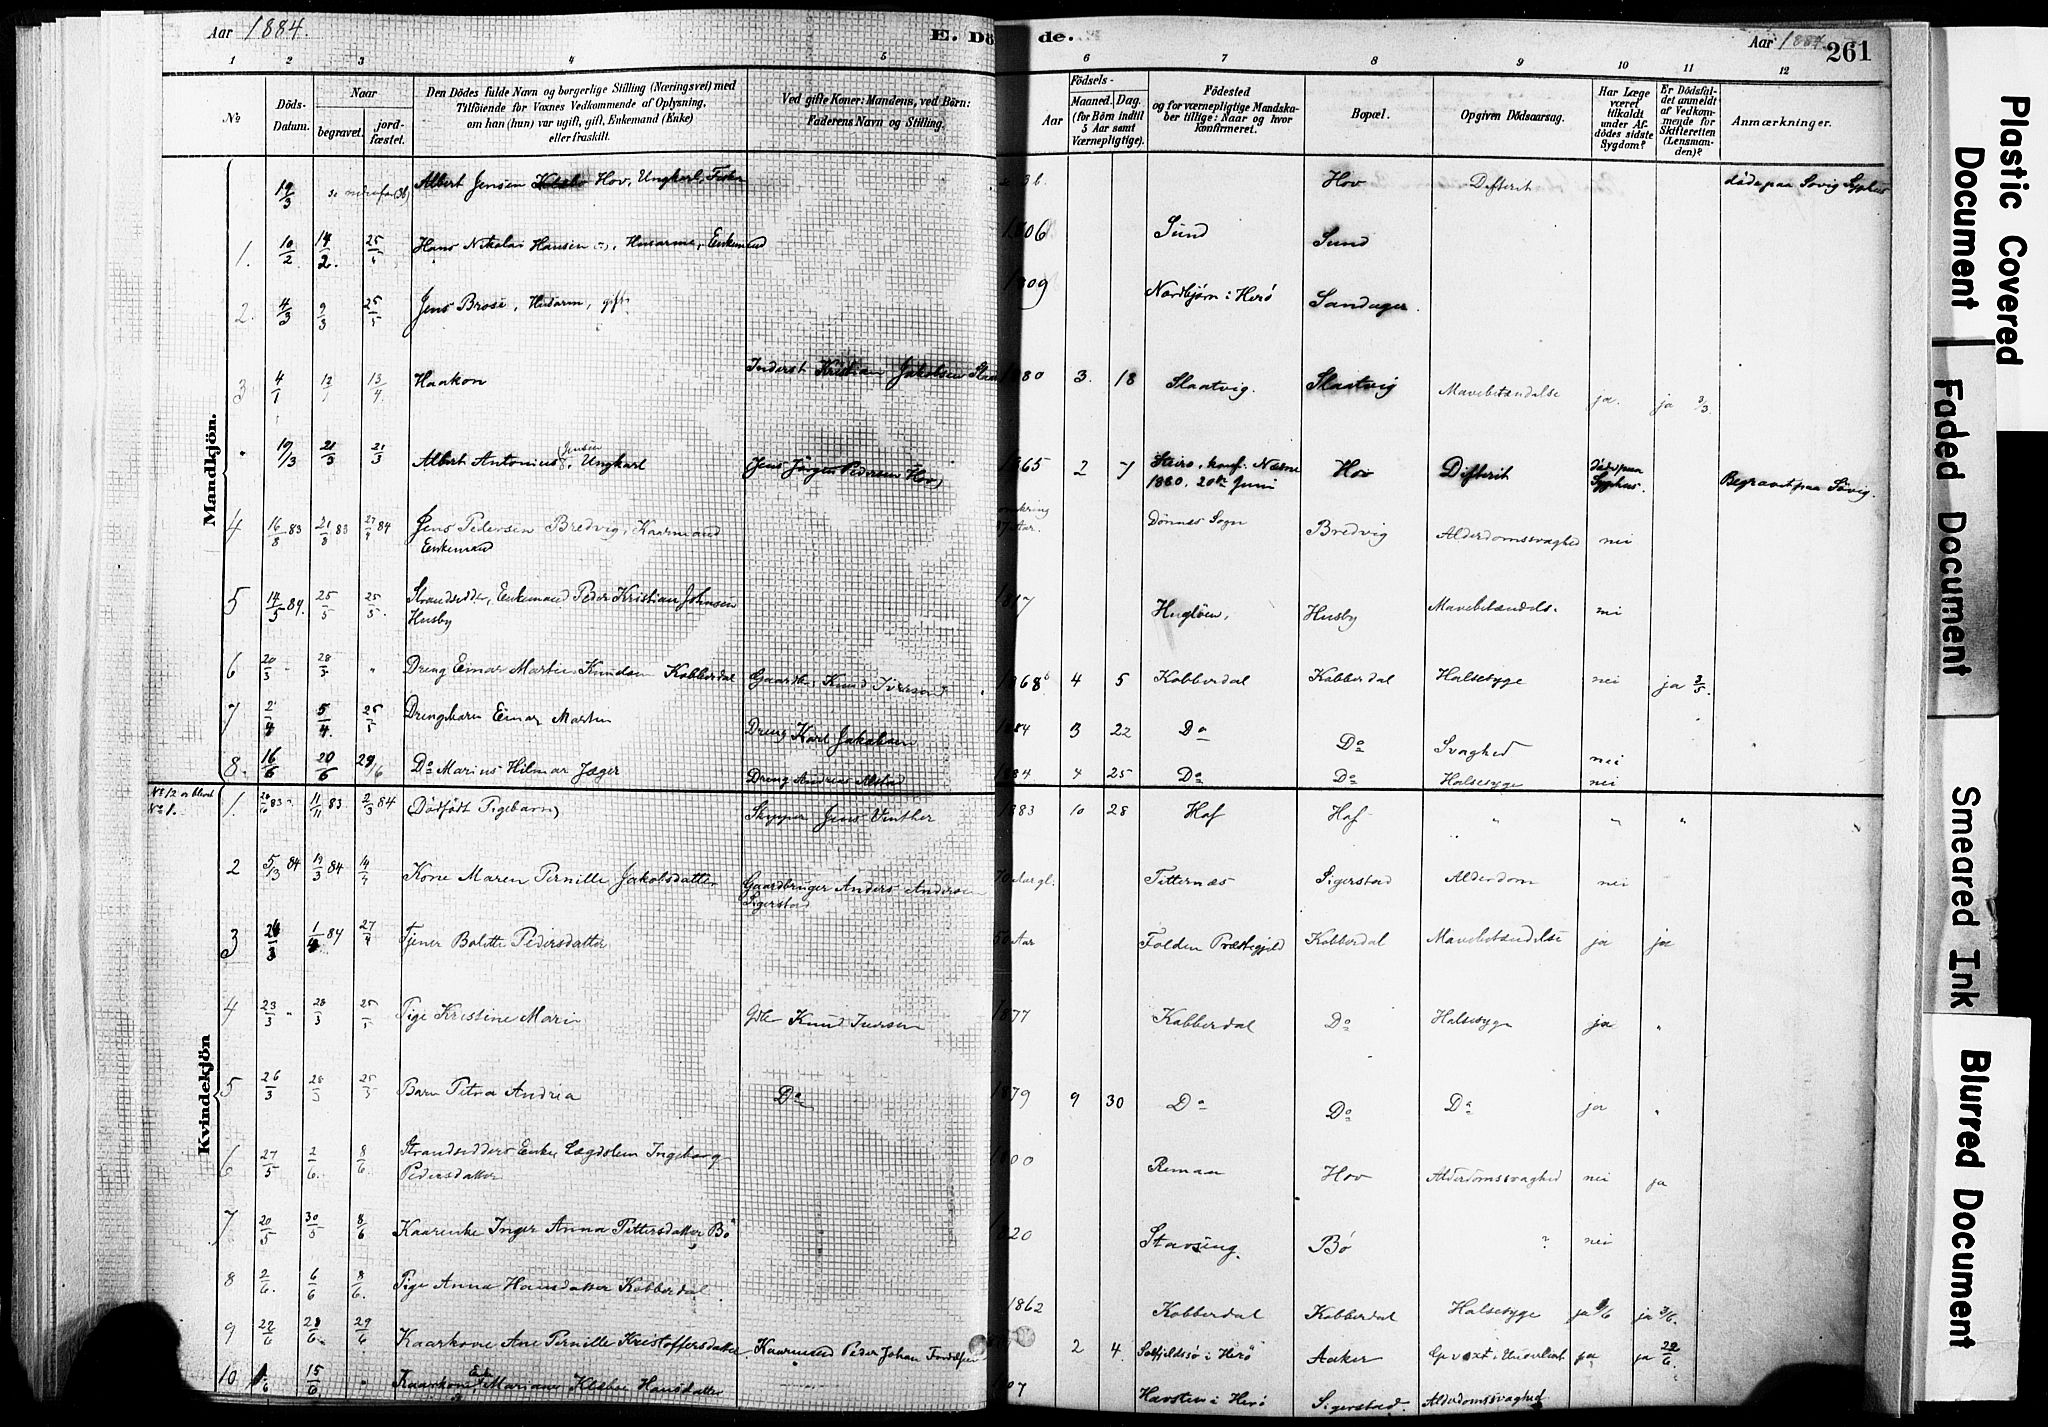 Aar 1884.
E. Dö
de.
Aar 1884.
261
1 2 3 4 5 6 7 8 9 10 11 12
№
Döds-Datum.
Naar
begravet.
jord-fæstet.
Den Dödes fulde Navn og borgerlige Stilling (Næringsvei) med
Tilföiende for Voxnes Vedkommende af Oplysning,
om han (hun) var ugift, gift, Enkemand (Enke)
eller fraskilt.
Ved gifte Koner: Mandens, ved Börn:
Faderens Navn og Stilling.
Födsels-
Aar
Maaned. Dag.
(for Börn indtil
5 Aar samt
Værnepligtige).
Födested
og for værnepligtige Mandska-
ber tillige: Naar og hvor
konfirmeret.
Bopæl.
Opgiven Dödsaarsag.
Har Læge
været
tilkaldt
under Af-
dödes sidste
Sygdom?
Er Dödsfal-
det anmeldt
af Vedkom-
mende for
Skifteretten
(Lensman-
den)?
Anmærkninger.
Mandkjön.
19/3 Albert Jensen Hov, Ungkarl, Fisker Hov Difterit döde paa Sövig Sygehus
1. 10/2 14/2 25/5 Hans Nikolai Hansen, Husarm, Enkemand 1806 Sund Sund
2. 4/3 9/3 25/5 Jens Brose, Husarm, gift 1809 Nordbjørn i Herö Sandager
3 13/4 Haakon Inderst Kristian Jakobsen 1880 3. 18 Slaatvig. Slaatvig Mavebetændelse ja. ja
19/3 21/3 21/3 Albert Antonius Jensen, Ungkarl Jens Jörgen Pedersen Hov 1865 2 7 konf. Næsne 1880, 20de Juni Hov Difterit Begravet paa Sövig.
4 16/8 83 21/8 83 84 Jens Pedersen Bredvig, Kaarmand
Enkemand Dønnes Sogn Bredvig Alderdomssvaghed nei
5 14/5 84. 25/5 25/5 Strandsidder, Enkemand Peder Kristian Johnsen
Husby 1817 Hugløen, Husby Mavebetændels. nei
6 20/3 28/3 " Dreng Einar Martin Knudsen Kobberdal Gaardbr. Knud Iversen 1868 4 5 Kobberdal Kobberdal Halsesyge nei ja 3/5.
7 5/4. 25/5 Drengebarn Einar Martin Dreng Karl Jakobsen 1884 3 22 Do Do Svaghed nei
8. 16/6 20/6 29/6 Do Marius Hilmar Jæger Dreng Andreas Alstad 1884 4 25 Do Do Halsesyge nei
Kvindekjön
No 12 er blevet
No 1.
1. 83 11/11 83 2/3 84 (Dødfødt Pigebarn) Skipper Jens Vinther 1883 10 28 Haf Haf " " "
2 5/3 84 19/3 84 Kone Maren Pernille Jakobsdatter Gaardbruger Anders Andersen
Sigerstad 70 Aar gl. Titternæs Sigerstad Alderdom nei
3 26/3 1/4 84 27/4 Tjener Bolette Pedersdatter 50 Aar Folden Præstegjeld Kobberdal Mavebetændelse ja ja
4 23/3 28/3 25/5 Pige Kristine Marie Gbr Knud Iversen 1877 Kobberdal Do Halsesyge ja "
5 26/3 28/3 25/5 Barn Petra Andrea Do 1879 9 30 Do Do Do ja "
6 27/5 2/6. 8/6 Strandsidders Enke Ingeborg
Pedersdatter 1800 Reman Hov Alderdomssvaghed nei ja
7 20/5 30/5 8/6 Kaarenke Inger Anna Pettersdatter Bö 1820 Stavseng. Bö ? nei
8 2/6. 6/6 8/6. Pige Anna Hansdatter Kobberdal 1862 Kobberdal Kobberdal Halsesyge ja ja 3/6.
9 22/6 28/6. 29/6 Kaarkone Ane Pernille Kristoffersdatter. Kaarmand Peder Johan 2 4. i Herö Aaker ja ja 22/6.
10. 15/6 " Kaarkone Mariane Hansdatter Havsten i Herö Sigerstad. Alderdomssvaghed
Plastic Covered Document
Faded Document
Smeared Ink
Blurred Document